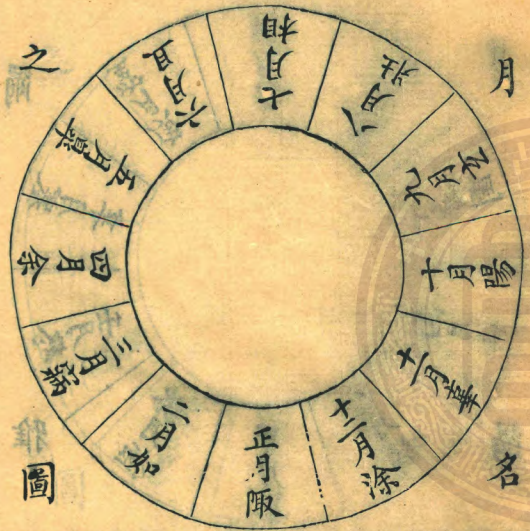 月名
之圖
正月陬
二月如
三月寎
四月余
五月皐
六月且
七月相
八月壯
九月玄
十月陽
十一月辜
十二月涂